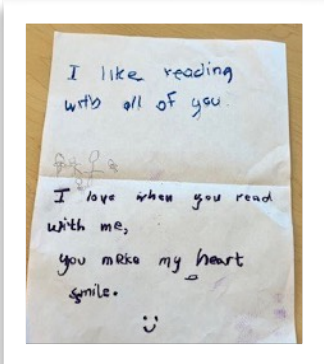 I like reading
with all of you.
I love when you read
with me,
you make my heart
smile.